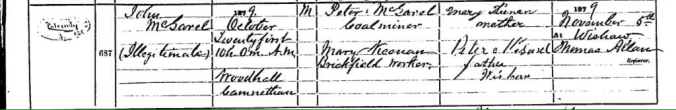 John
McGarel
(Illegitimate)
687
1879
October
Twenty first
10h. 0m. A.M.
Woodhall
Cambusnethan
M
Peter McGarel
Coalminer
Mary Keenan
Brickfield Worker
Mary Keenan
mother
Peter McGarel
father
Wishaw
1879
November 5th
At Wishaw
Thomas Allan
Registrar.